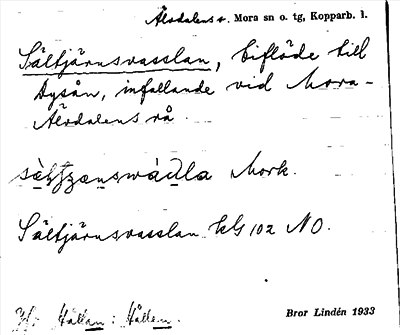 Älvdalens + Mora sn o. tg, Kopparb. l.
Sältjärnsvasslan, biflöde till
Dysån, infallande vid Mora-
Älvdalens rå.
Mork.
Sältjärnsvasslan kG 102 NO.
Hållan: Hållen.
Bror Lindén 1933